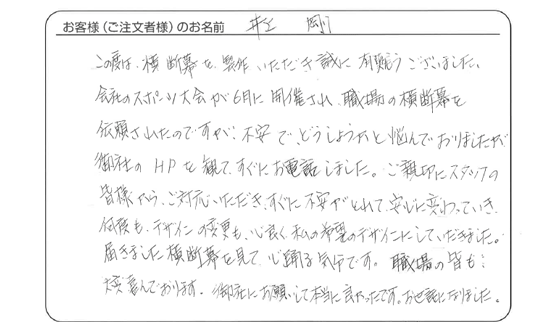 お客様（ご注文者様）のお名前 井上 剛
この度は、横断幕を、製作いただき誠に有難うございました。
会社のスポーツ大会が6月に開催され、職場の横断幕を
依頼されたのですが、不安で、どうしようかと悩んでおりましたが
御社のHPを観て、すぐにお電話しました。ご親切にスタッフの
皆様から、ご対応いただき、すぐに不安がとれて、安心に変わっていき、
何度も、デザインの変更も、心良く、私の希望のデザインにしていただきました。
届きました横断幕を見て、心踊る気分です。職場の皆も、
大変喜んでおります。御社にお願いして本当に良かったです。お世話になりました。